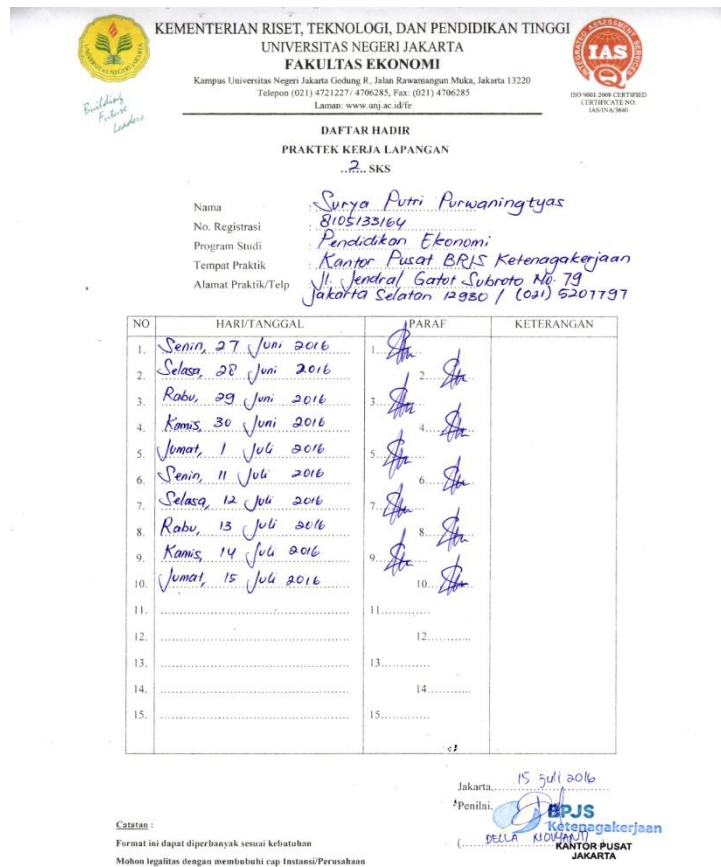 KEMENTERIAN RISET, TEKNOLOGI, DAN PENDIDIKAN TINGGI
UNIVERSITAS NEGERI JAKARTA
FAKULTAS EKONOMI
Kampus Universitas Negeri Jakarta Gedung R, Jalan Rawamangun Muka, Jakarta 13220
Telepon (021) 4721227/ 4706285, Fax: (021) 4706285
Laman: www.unj.ac.id/fe
Building
Future
Leaders
IAS
ISO 9001:2008 CERTIFIED
CERTIFICATE NO:
IAS/INA/3640
DAFTAR HADIR
PRAKTEK KERJA LAPANGAN
..2.. SKS
Nama : Surya Putri Purwaningtyas
No. Registrasi : 8105133164
Program Studi : Pendidikan Ekonomi
Tempat Praktik : Kantor Pusat BPJS Ketenagakerjaan
Alamat Praktik/Telp : Jl. Jendral Gatot Subroto No. 79
Jakarta Selatan 12930 / (021) 5207797
NO HARI/TANGGAL PARAF KETERANGAN
1. Senin, 27 Juni 2016 1.
2. Selasa, 28 Juni 2016 2.
3. Rabu, 29 Juni 2016 3.
4. Kamis, 30 Juni 2016 4.
5. Jumat, 1 Juli 2016 5.
6. Senin, 11 Juli 2016 6.
7. Selasa, 12 Juli 2016 7.
8. Rabu, 13 Juli 2016 8.
9. Kamis, 14 Juli 2016 9.
10. Jumat, 15 Juli 2016 10.
11. 11.
12. 12.
13. 13.
14. 14.
15. 15.
Jakarta, 15 Juli 2016
Penilai,
BPJS
Ketenagakerjaan
(DELLA NOVIYANTI)
KANTOR PUSAT
JAKARTA
Catatan :
Format ini dapat diperbanyak sesuai kebutuhan
Mohon legalitas dengan membubuhi cap Instansi/Perusahaan